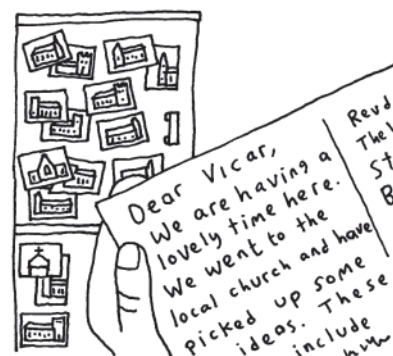 Dear Vicar,
We are having a
lovely time here.
We went to the
local church and have
picked up some
ideas. These
include
Revd
The
St
B